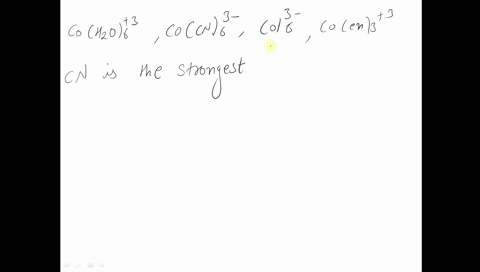 Co(H2O)6^+3, Co(CN)6^3-, CoI6^3-, Co(en)3^+3
CN is the strongest